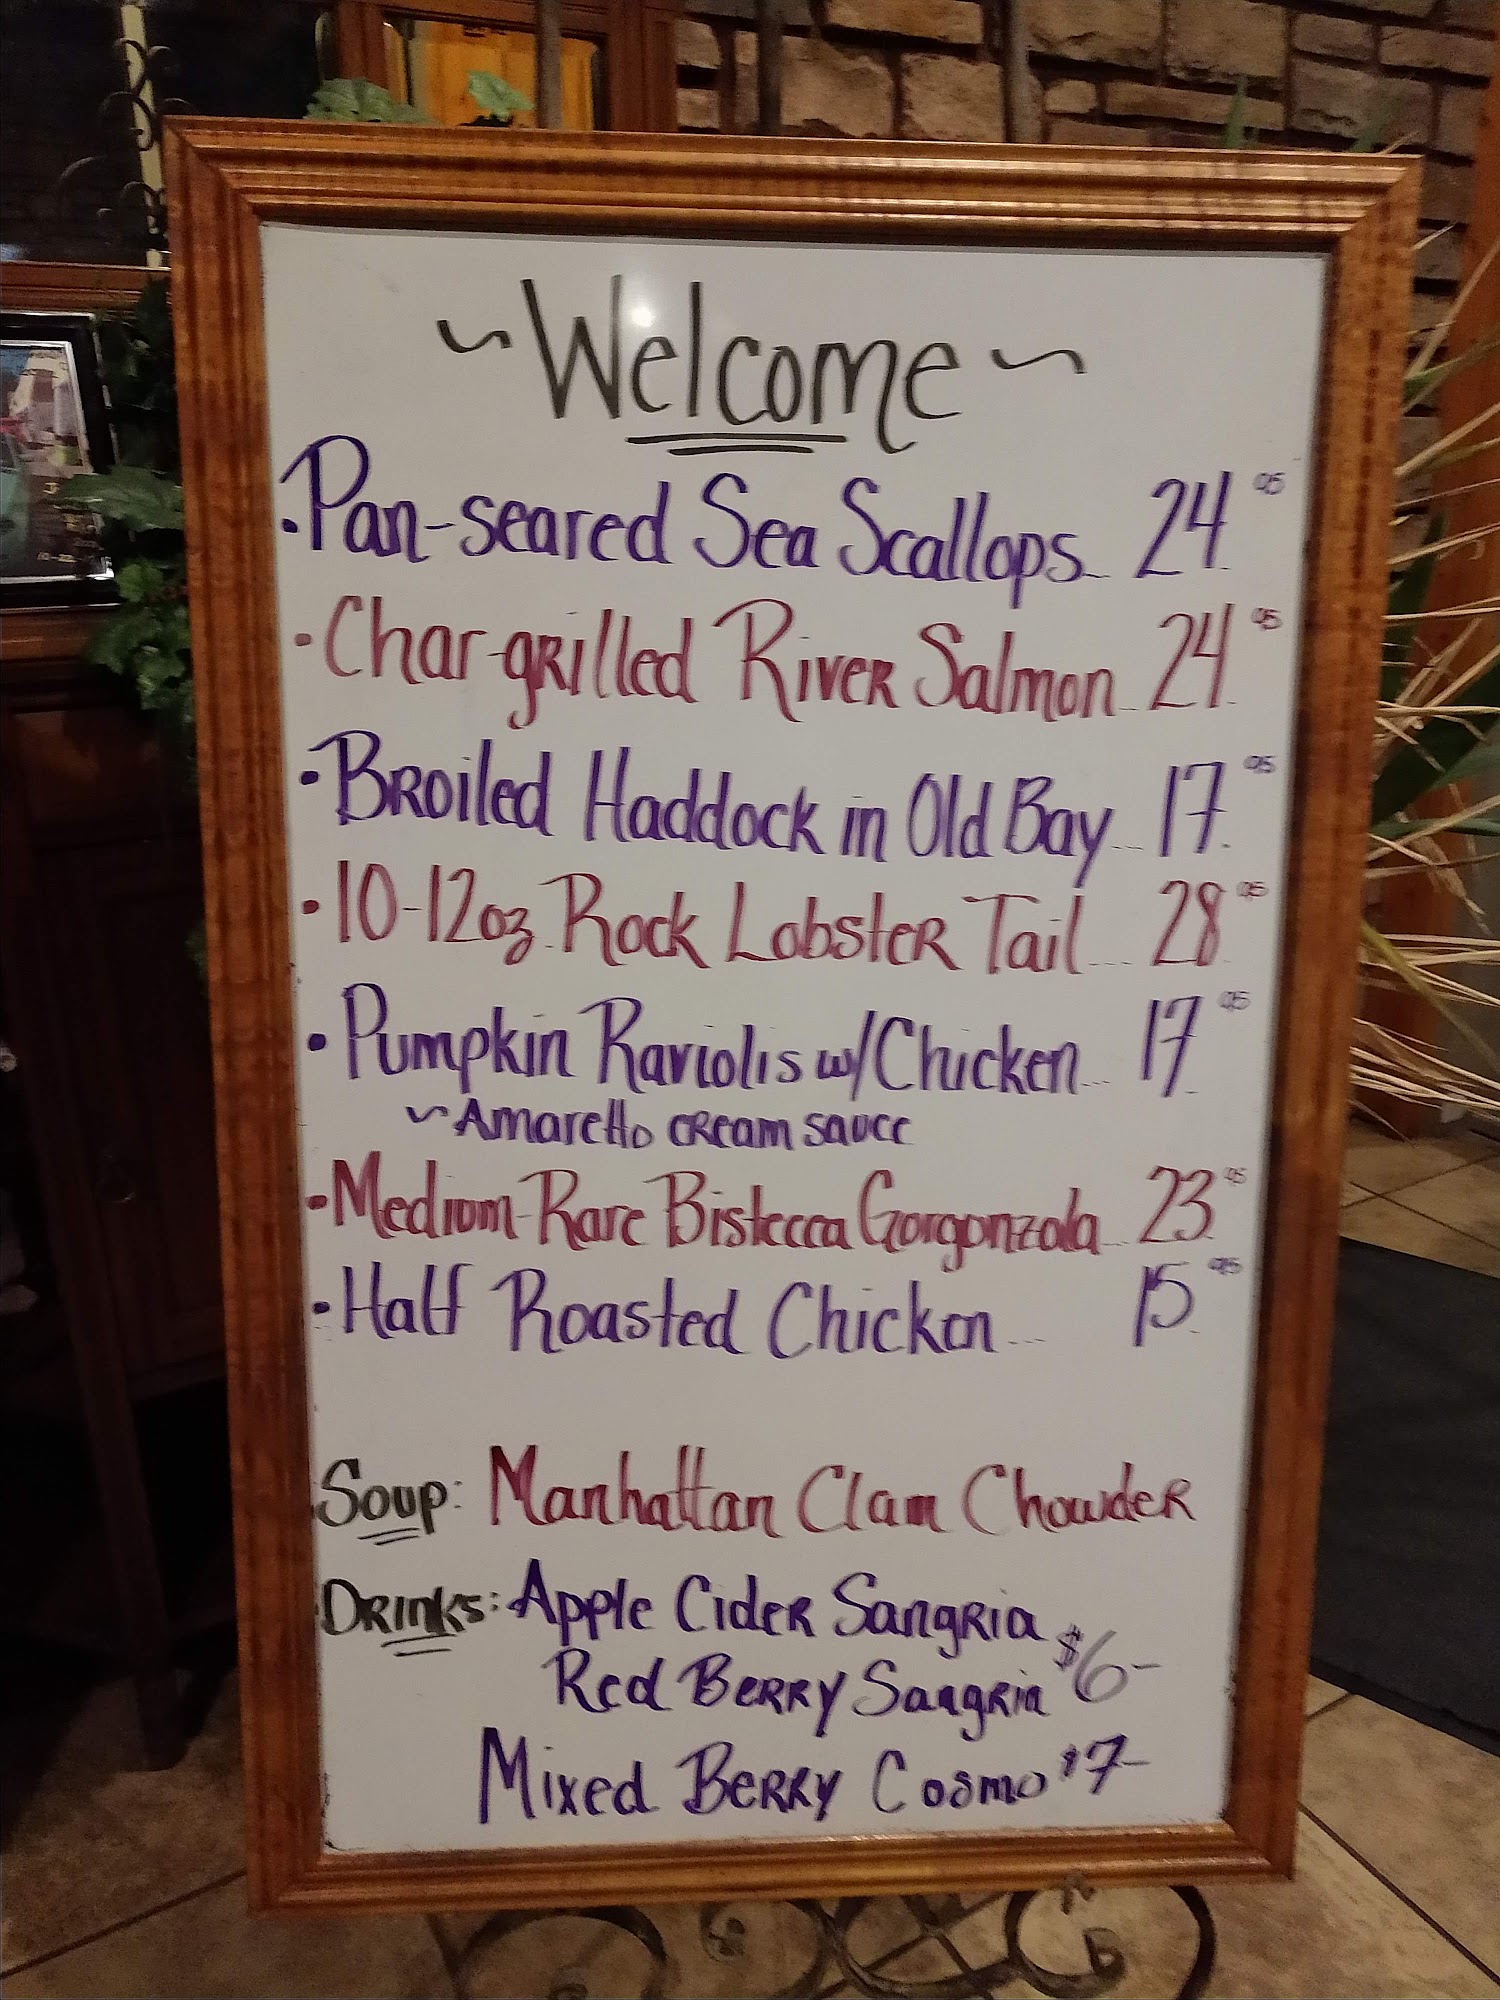 ~Welcome~
• Pan-seared Sea Scallops 24.95
• Char-grilled River Salmon 24.95
• Broiled Haddock in Old Bay 17.95
• 10-12oz. Rock Lobster Tail 28.95
• Pumpkin Raviolis w/Chicken 17.95
~Amaretto cream sauce
• Medium-Rare Bistecca Gorgonzola 23.95
• Half Roasted Chicken 15.95
Soup: Manhattan Clam Chowder
Drinks: Apple Cider Sangria
Red Berry Sangria $6-
Mixed Berry Cosmo $7-